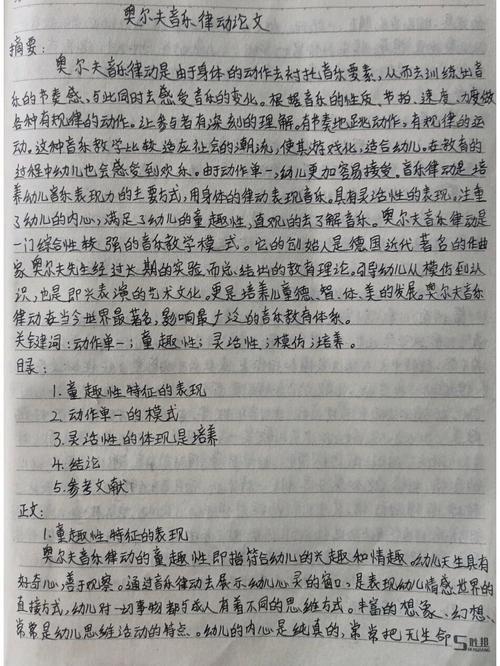 奥尔夫音乐律动论文
摘要:
奥尔夫音乐律动是由于身体的动作去衬托音乐要素,从而去训练出音
乐的节奏感,与此同时去感受音乐的变化。根据音乐的性质、节拍、速度、力度做
各种有规律的动作。让参与者有深刻的理解。有节奏地跳动作,有规律的运
动。这种音乐教学比较适应社会的潮流,使其游戏化,适合幼儿。在教育的
过程中幼儿也会感受到欢乐。由于动作单一,幼儿更加容易接受。音乐律动是培
养幼儿音乐表现力的主要方式,用身体的律动表现音乐。具有灵活性的表现。注重
了幼儿的内心,满足了幼儿的童趣性,直观的去了解音乐。奥尔夫音乐律动是
一门综合性较强的音乐教学模式。它的创始人是德国近代著名的作曲
家奥尔夫先生经过长期的实验而总结出的教育理论。引导幼儿从模仿到认
识,也是即兴表演的艺术文化。更是培养儿童德、智、体、美的发展。奥尔夫音乐
律动在当今世界最著名,影响最广泛的音乐教育体系。
关键词:动作单一;童趣性;灵活性;模仿;培养。
目录:
1.童趣性特征的表现
2.动作单一的模式
3.灵活性的体现是培养
4.结论
5.参考文献
正文:
1.童趣性特征的表现
奥尔夫音乐律动的童趣性即指符合幼儿的兴趣和情趣。幼儿天生具有
好奇心,善于观察。通过音乐律动去展示幼儿心灵的窗口,是表现幼儿情感世界的
直接方式,幼儿对一切事物都与成人有着不同的思维方式。丰富的想象、幻想、
常常是幼儿思维活动的特点。幼儿的内心是纯真的,常常把无生命